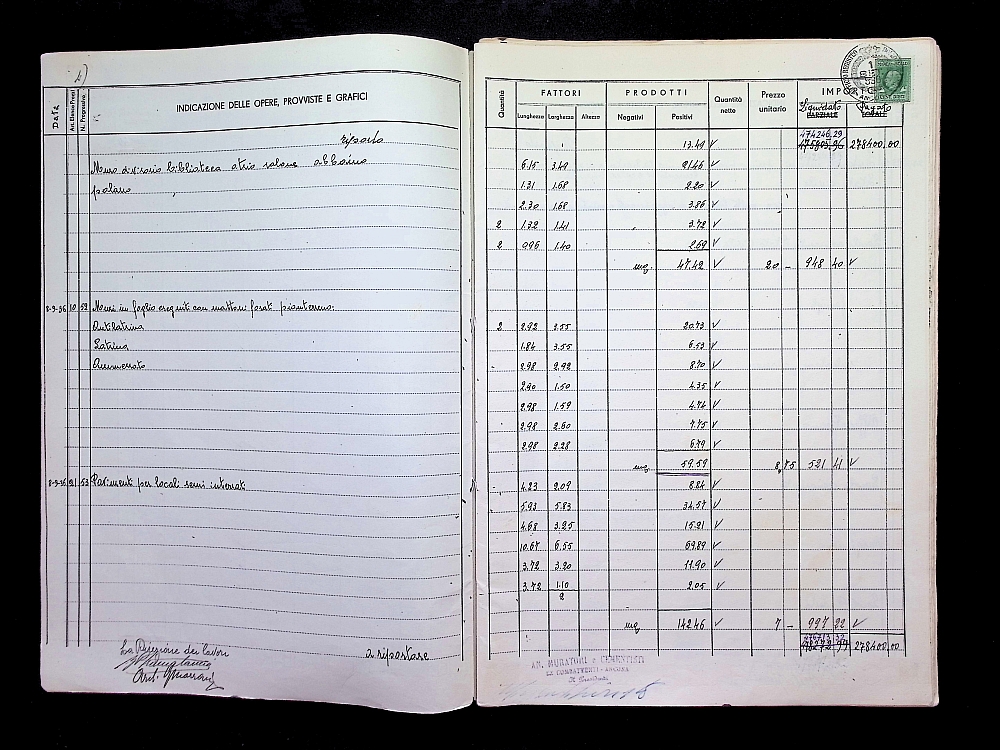 Data
An. Elenco Prezzi
N. Progressivo
INDICAZIONE DELLE OPERE, PROVVISTE E GRAFICI
Quantità
FATTORI
Lunghezza Larghezza Altezza
PRODOTTI
Negativi Positivi
Quantità netto
Prezzo unitario
IMPORTO
Liquidato Pagato
PARZIALE TOTALE
riporto 13.49 V 474246,29
475803,96 278400,00
Muro divisorio biblioteca atrio salone abbaino 6.15 3.49 21.46 V
1.31 1.68 2.20 V
2.30 1.68 3.86 V
2 1.32 1.41 3.72 V
2 096 1.40 2.69 V
mq. 47.42 V 20 - 948 40 V
8-9-36 10 52 Muri in foglio eseguiti con mattoni forati pianterreno.
Antilatrina 2 2.92 2.55 20.73 V
Latrina 1.84 3.55 6.53 V
2.98 2.92 8.70 V
2.90 1.50 4.35 V
2.98 1.59 4.74 V
2.98 2.60 7.75 V
2.98 2.28 6.79 V
mq 59.59 8,75 521 41 V
8-9-36 21 53 Pavimenti per locali semi interrati 4.23 2.09 8.84 V
5.93 5.83 34.57 V
4.68 3.25 15.21 V
10.67 6.55 69.89 V
3.72 3.20 11.90 V
3.72 1.10
2 2.05 V
mq 142.46 V 7 - 997 22 V
278400,00
La Direzione dei Lavori
a riportare
AN. MURATORI e CEMENTISTI
EX COMBATTENTI - ANCONA
Il Presidente